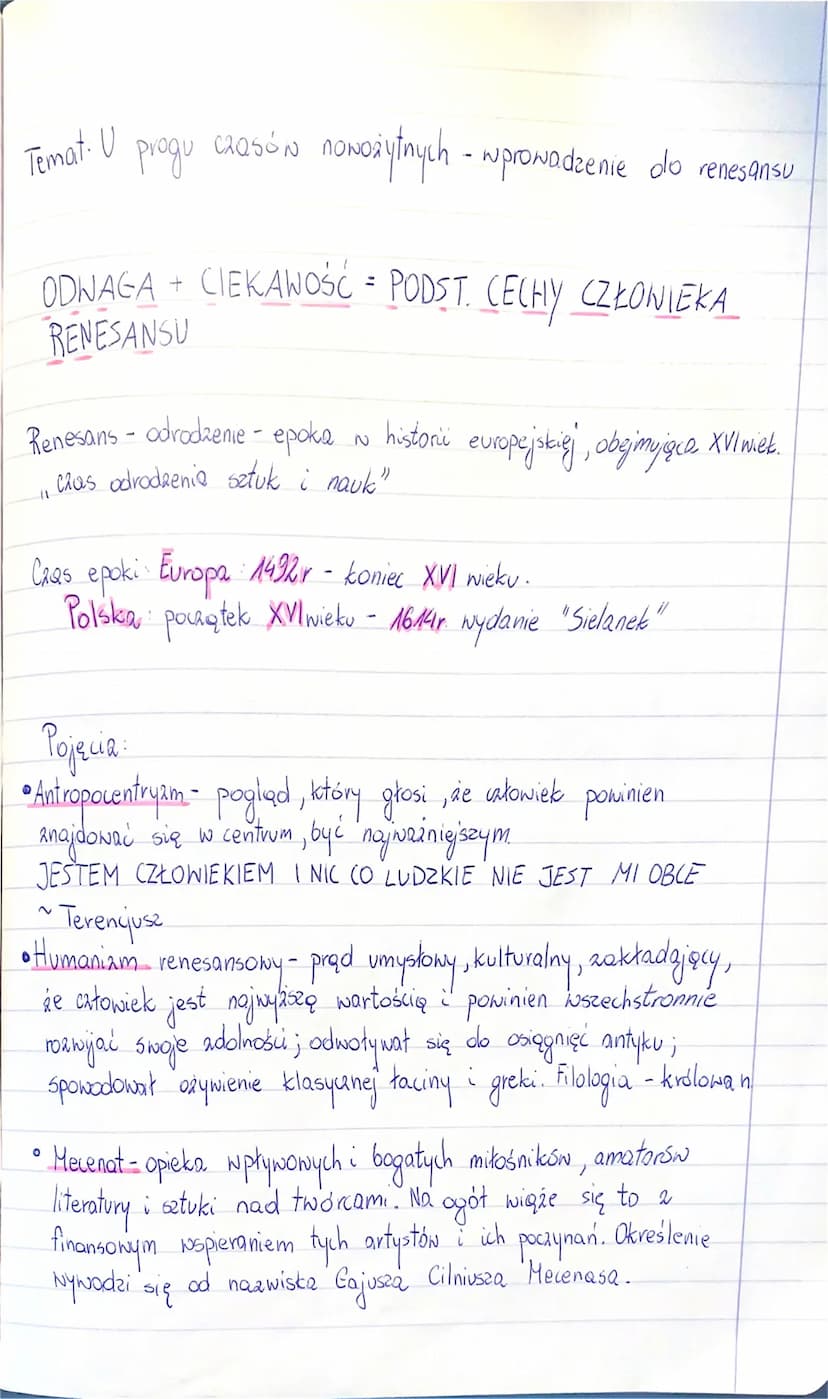 Temat. U progu czasów nowożytnych - wprowadzenie do renesansu
ODWAGA + CIEKAWOŚĆ = PODST. CECHY CZŁOWIEKA
RENESANSU
Renesans - odrodzenie - epoka w historii europejskiej, obejmująca XVI wiek.
„czas odrodzenia sztuk i nauk”
Czas epoki: Europa: 1492r - koniec XVI wieku.
Polska: początek XVI wieku - 1614r. wydanie "Sielanek"
Pojęcia:
• Antropocentryzm - pogląd, który głosi, że człowiek powinien
znajdować się w centrum, być najważniejszym.
JESTEM CZŁOWIEKIEM I NIC CO LUDZKIE NIE JEST MI OBCE
~ Terencjusz
• Humanizm renesansowy - prąd umysłowy, kulturalny, zakładający,
że człowiek jest najwyższą wartością i powinien wszechstronnie
rozwijać swoje zdolności; odwoływał się do osiągnięć antyku;
spowodował ożywienie klasycznej łaciny i greki. Filologia - królowa n
• Mecenat - opieka wpływowych i bogatych miłośników, amatorów
literatury i sztuki nad twórcami. Na ogół wiąże się to z
finansowym wspieraniem tych artystów i ich poczynań. Określenie
wywodzi się od nazwiska Gajusza Cilniusza Mecenasa.